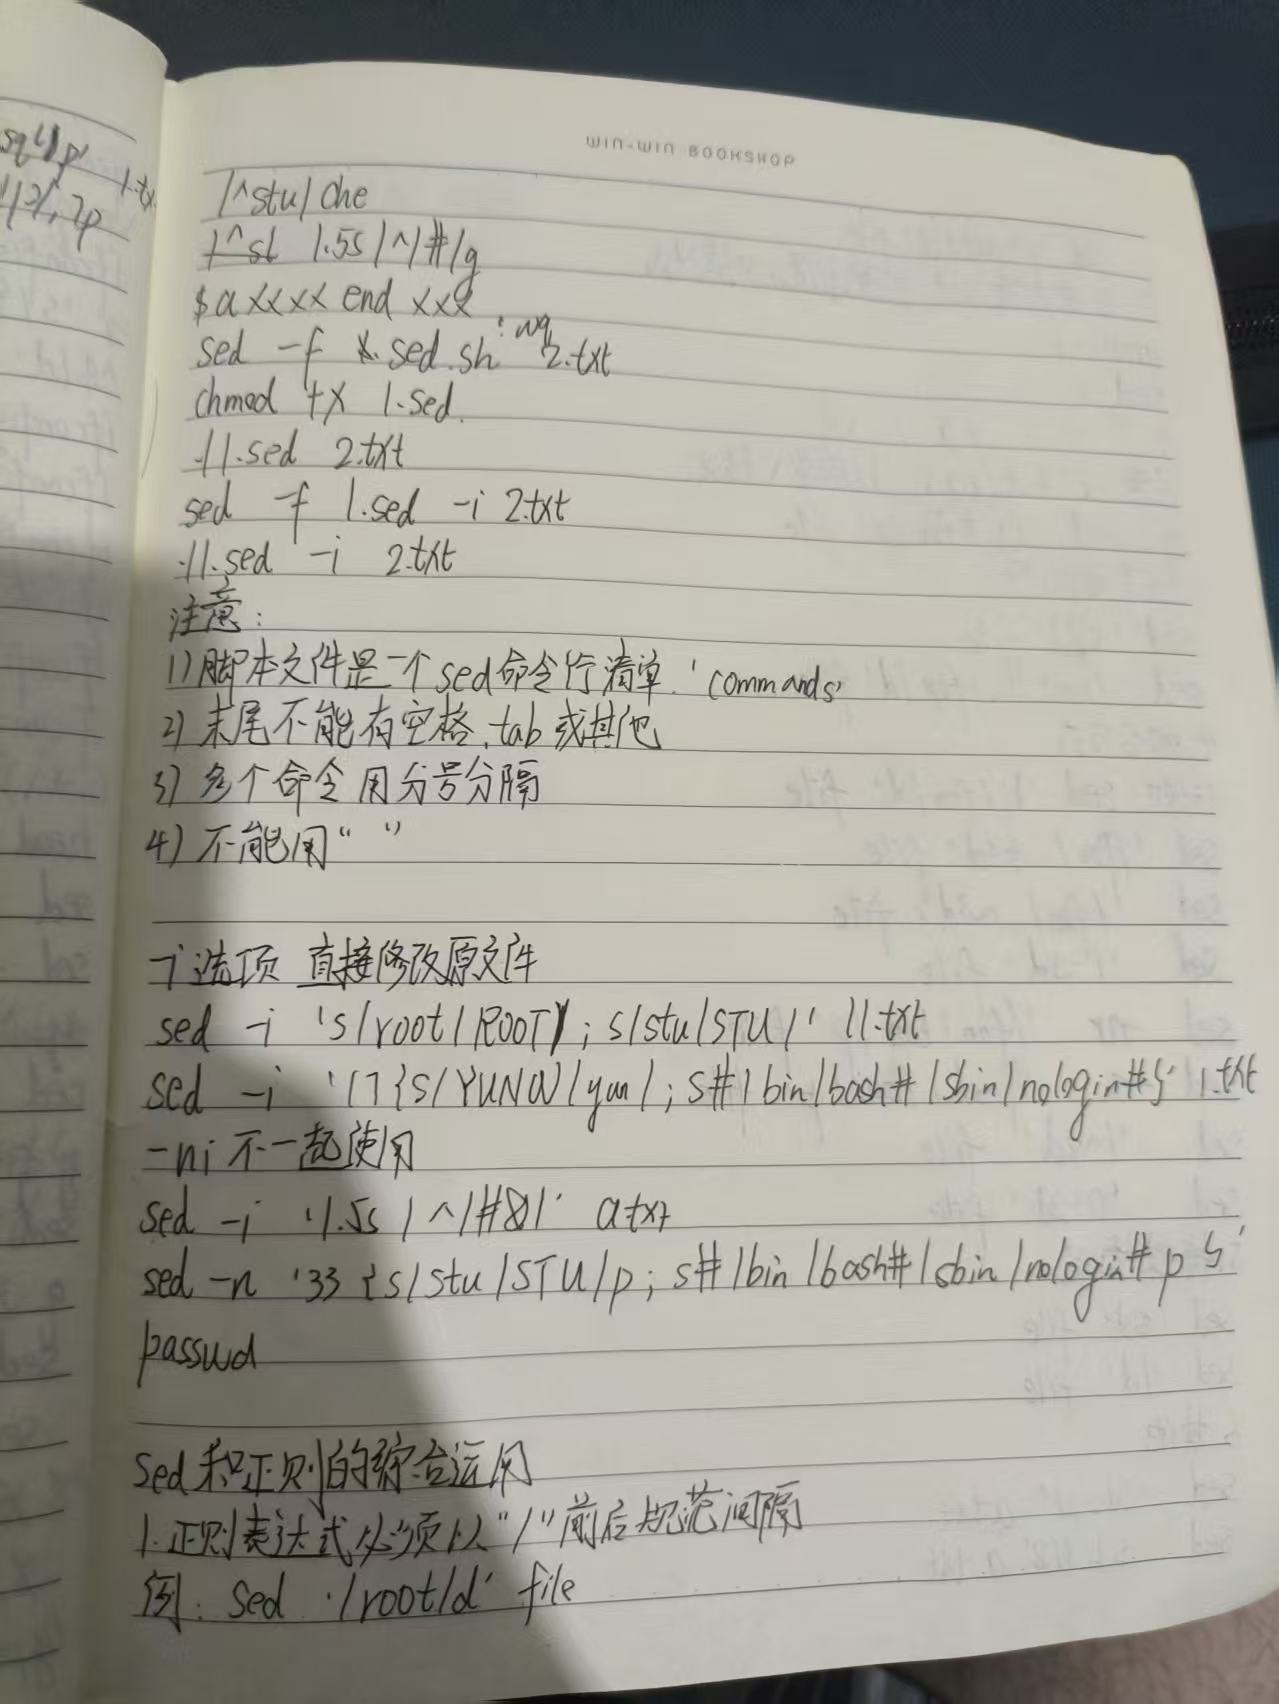 WIN-WIN BOOKSHOP
1.tx
/^stu/ che
1.5s/^/#/g
$a xxxx end xxx
:wq
sed -f sed.sh 2.txt
chmod +x 1.sed
./1.sed 2.txt
sed -f 1.sed -i 2.txt
./1.sed -i 2.txt
注意:
1)脚本文件是一个sed命令行清单.'commands'
2)末尾不能有空格.tab或其他
3)多个命令用分号分隔
4)不能用“ ”
-i选项 直接修改原文件
sed -i 's/root/ROOT/; s/stu/STU/' 11.txt
sed -i '17{s/YUNW/yun/; s#/bin/bash#/sbin/nologin#}' 1.txt
-ni 不一起使用
sed -i '1.5s /^/#&/' a.txt
sed -n '33{s/stu/STU/p; s#/bin/bash#/sbin/nologin#p}'
passwd
sed和正则的综合运用
1.正则表达式必须以“/”前后规范间隔
例: sed '/root/d' file